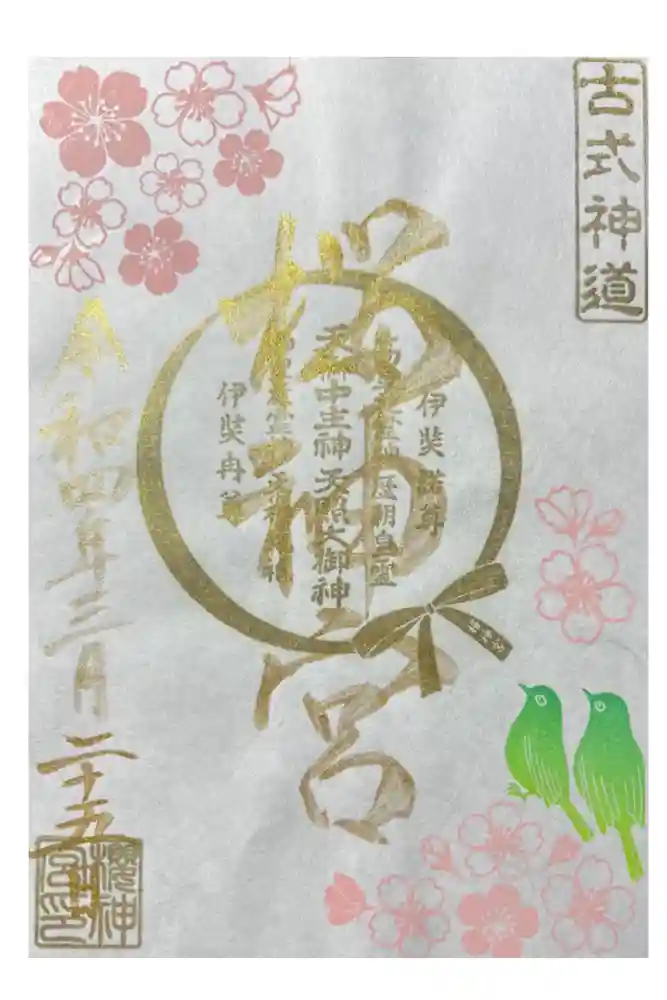 古式神道
伊奘諾尊
高皇産霊神 歴朝皇霊
天御中主神 天照大御神
伊奘冉尊
桜神宮
令和四年三月二十五日
櫻神宮印